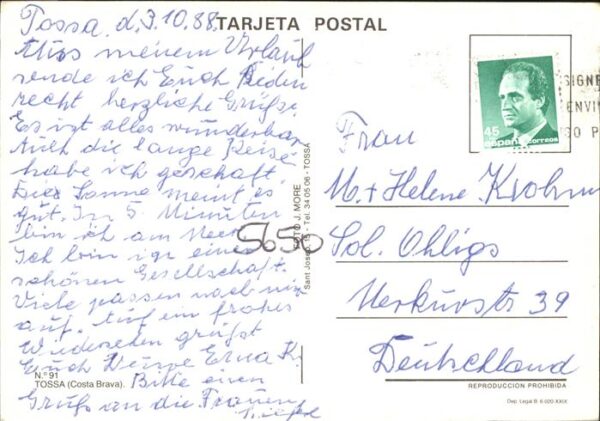 Tossa, d. 3.10.88
TARJETA POSTAL
Aus meinem Urlaub
sende ich Euch Beden
recht herzliche Grüße.
Es ist alles wunderbar
Auch die lange Reise
habe ich geschaft
Die Sonne meint es
gut. In 5 Minuten
bin ich am Meer
Ich bin in einer
schönen Gesellschaft.
Viele passen noch mir
auf. Auf ein frohes
Wiedersehen grüßt
Euch Erna K.
Bitte einen
Gruß an die Frauen
N.º 91
TOSSA (Costa Brava).
FOTO J. MORE
Sant Josep, Tel. 34 05 96 - TOSSA
5650
45
españa
correos
SIGNE
ENVI
SO P
Frau
M. + Helene Krohm
Sol. Ohligs
Merkurstr 39
Deutschland
REPRODUCCION PROHIBIDA
Dep. Legal B. 6.020-XXIX